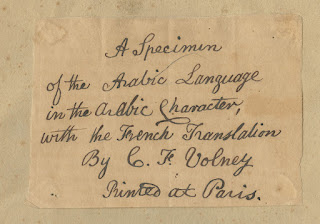 A Specimen
of the Arabic Language
in the Arabic Character,
with the French Translation
By C. F. Volney
Printed at Paris.